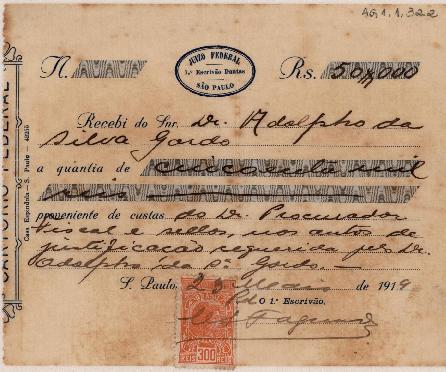 AG1.1.322
JUIZO FEDERAL
1.º Escrivão Dantas
SÃO PAULO
N.
Rs. 50$000
Recebi do Snr. Dr. Adolpho da
Silva Gordo
a quantia de cincoenta mil
reis
proveniente de custas do Dr. Procurador
Fiscal e sellos, nos autos de
justificação requerida pelo Dr.
Adolpho da Sª Gordo.
S. Paulo, 23 de 1919
O 1.º Escrivão,
300
REIS REIS
CARTORIO FEDERAL
Casa Espindola — S. Paulo